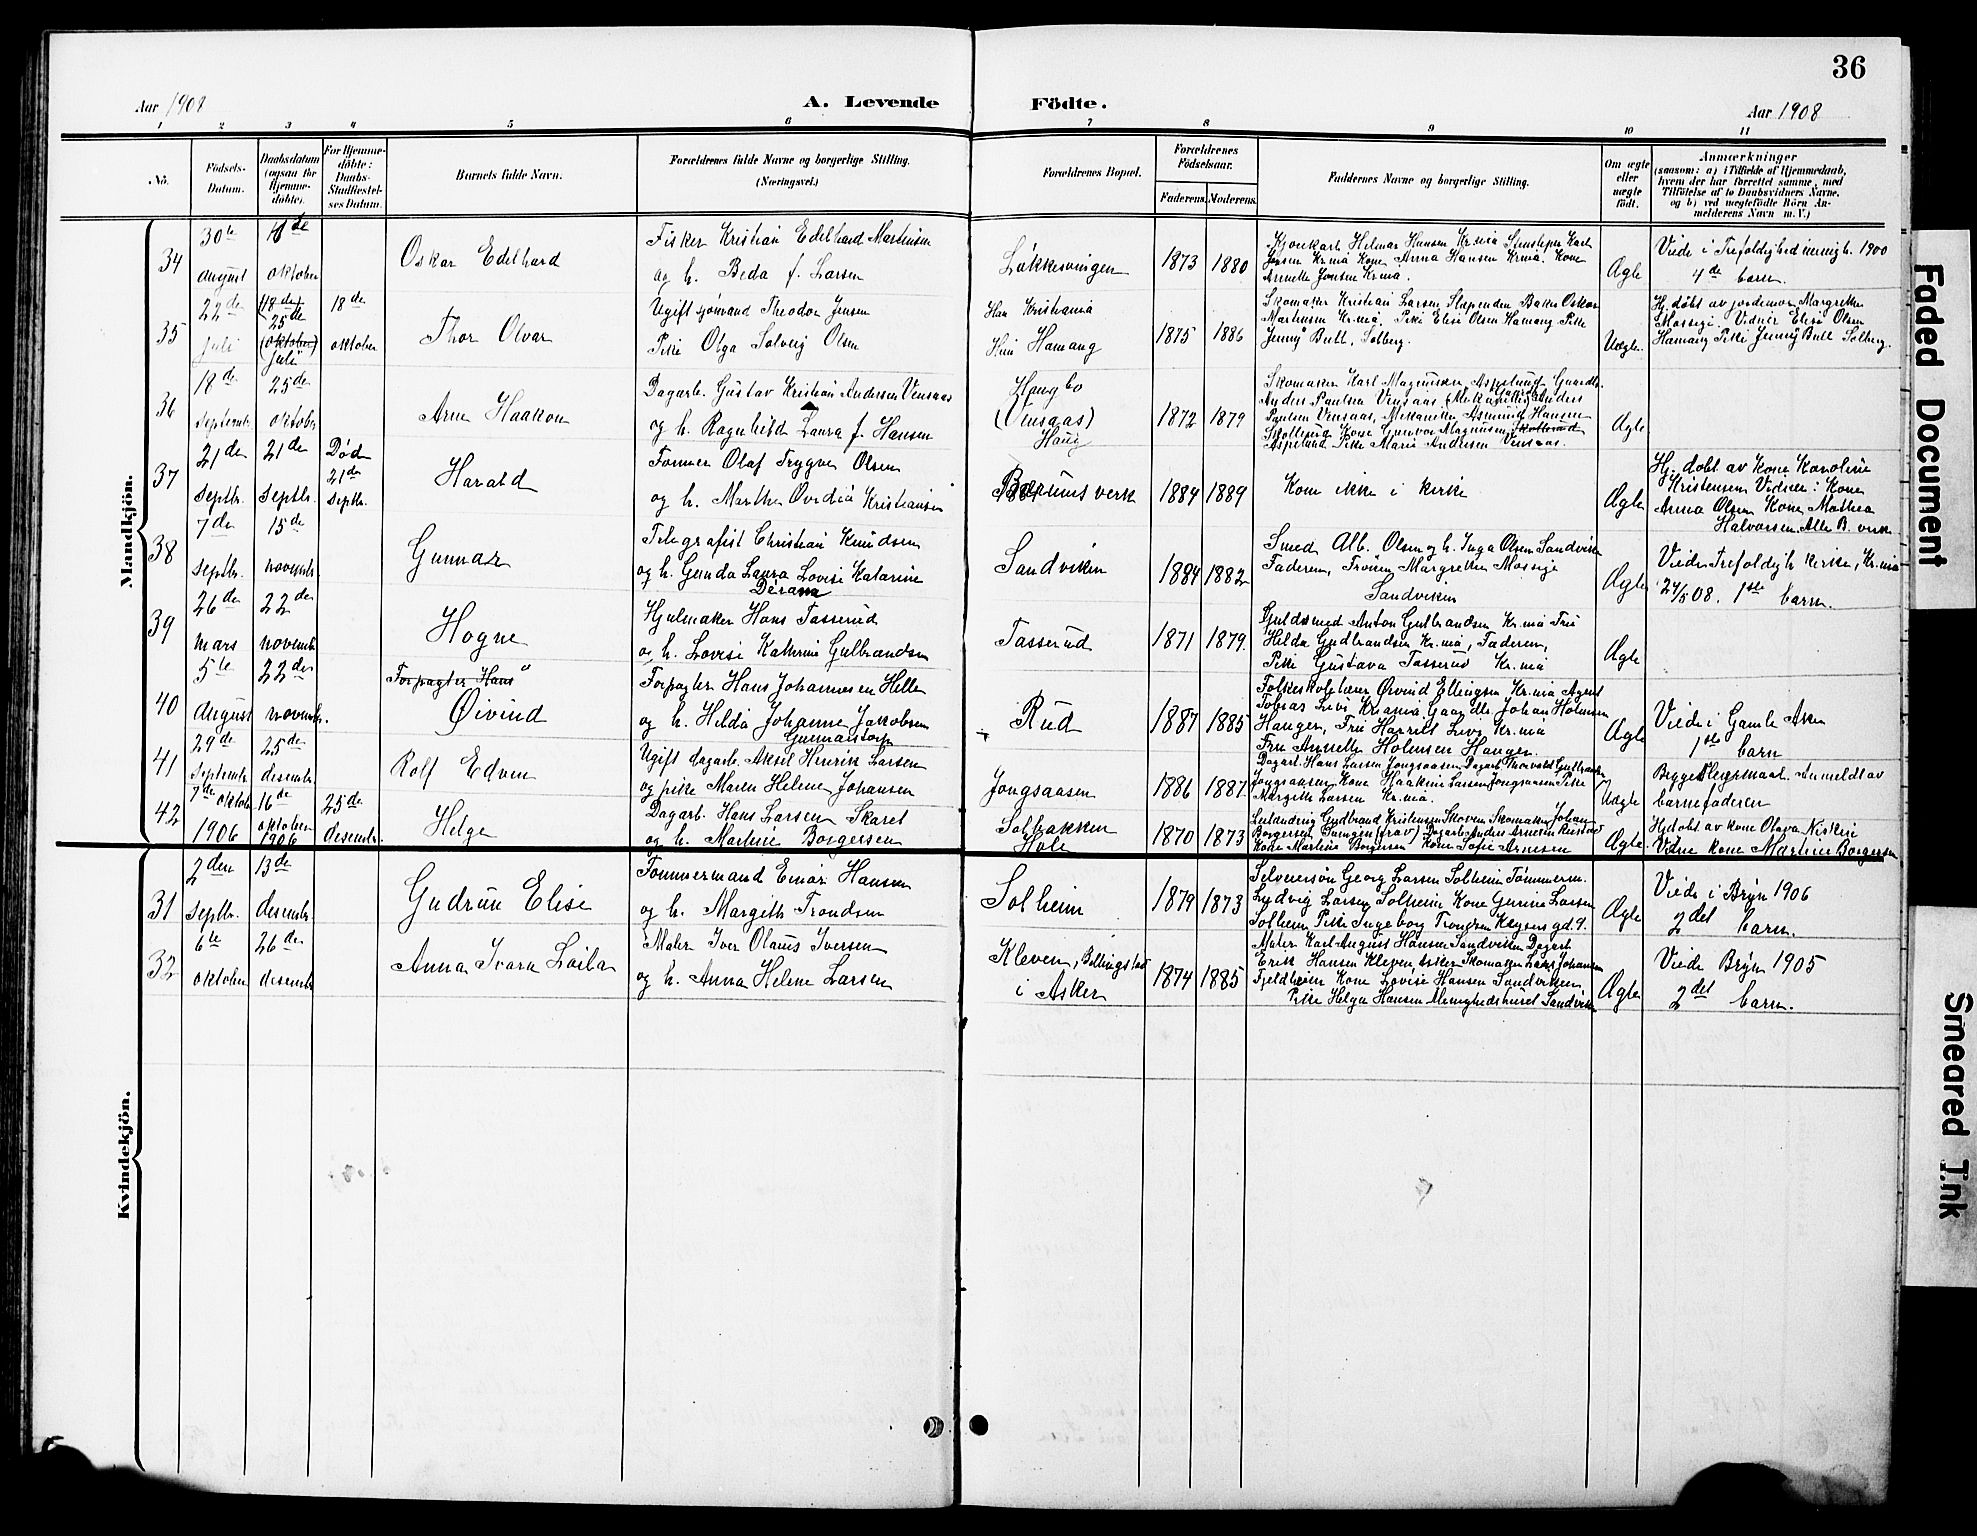 36
Aar 1908
A. Levende
Födte.
Aar 1908
1 2 3 4 5 6 7 8 9 10 11
No.
Födsels-
Datum.
Daabsdatum
(ogsaa for
Hjemme-
döbte).
For Hjemme-
döbte:
Daabs-
Stadfæstel-
ses Datum.
Barnets fulde Navn.
Forældrenes fulde Navne og borgerlige Stilling.
(Næringsvei.)
Forældrenes Bopæl.
Forældrenes
Födselsaar.
Faderens.
Moderens.
Faddernes Navne og borgerlige Stilling.
Om ægte
eller
uægte
födt.
Anmærkninger
(saasom: a) i Tilfælde af Hjemmedaab,
hvem der har forrettet samme, med
Tilföielse af to Daabsvidners Navne,
og b) ved uægtefödte Börn An-
melderens Navn m. V.)
Mandkjön.
34
30te
august
18de
oktober
Oskar Edelhard
Fisker Kristian Edelhard Martinsen
og h. Beda f. Larsen
Løkkesvingen
1873
1880
Kjørekarl Helmar Hansen Kr.mia
Kone Anna Hansen Kr.mia. Kone
Annette Jonsen Kr.mia.
Ægte
Viede i Trefoldighed menigh. 1900
4de barn.
35
22de
juli
(18de)
25de
(oktober)
juli
18de
oktober
Thor Olvar
Ugift sjømand Theodor Jensen
Pike Olga Solveig Olsen
Han Kristiania
Hun Hamang
1875
1886
Skomaker Kristian Larsen Slependen Baker Oskar
Martinsen Kr.mia. Pike Elise Olsen Hamang Pike
Jenny Bull, Solberg.
Uægte.
Hj. døbt av jordemor Margrethe
Mossige. Vidner Elise Olsen
Hamang Pike Jenny Bull Solberg.
36
18de
septembr.
25de
oktober
Arne Haakon
Dagarb. Gustav Kristian Andersen Vensaas
og h. Ragnhild Laura f. Hansen
Haugbo
(Vensaas)
Haug
1872
1879
Skomaker Karl Magnussen, Aspelund Gaardbr.
Anders Paulsen Vensaas
Paulsen Vensaas, Mekaniker Asmund Hansen
Kone Gunvor Magnussen
Aspelund Pike Marie Andersen Vensaas.
Ægte
37
21de
septbr.
21de
septbr.
Død
21de
septbr.
Harald
Former Olaf Trygve Olsen
og h. Marthe Ovidia Kristiansen
Bærums verk
1884
1889
Kom ikke i kirke
Ægte
Hj. døbt av Kone Karoline
Kristensen Vidner: Kone
Anna Olsen Kone Mathea
Halvorsen. Alle B. verk
38
7de
septbr.
15de
novembr.
Gunnar
Telegrafist Christian Knudsen
og h. Gunda Laura Lovise Katarine
Sandviken
1884
1882
Smed Alb. Olsen og h. Inga Olsen Sandviken
Faderen, Frøken Margrethe Mossige
Sandviken
Ægte
Viede Trefoldigh. kirke, Kr.mia
24/5 08. 1ste barn.
39
26de
mars
22de
novembr.
Hogne
Hjulmaker Hans Tasserud
og h. Lovise Kathrine Gulbrandsen
Tasserud
1871
1879.
Guldsmed Anton Gulbrandsen Kr.mia Fru
Hilda Gudbrandsen Kr.mia, Faderen,
Pike Gustava Tasserud Kr.mia
Ægte
40
5te
august
22de
novembr.
Forpagter Hans
Øivind
Forpagter Hans Johannesen Helle
og h. Hilda Johanne Jakobsen
Rud
1887
1885
Folkeskolelærer Øivind Ellingsen Kr.mia Agent
Tobias Levi Kr.mia Gaardbr. Johan Holmsen
Hanger, Fru Harriet Levi Kr.mia
Fru Annette Holmsen Hanger.
Ægte
Viede i Gamle Aker
1ste barn
41
29de
septembr.
25de
desembr.
Rolf Edvin
Ugift dagarb. Aksel Henrik Larsen
og pike Maren Helene Johansen
Jongsaasen
1886
1887.
Dagarb. Hans Larsen Jongsaasen, Dagarb. Thorvald Gulbrandsen
Jongsaasen, Kone Haakine Larsen Jongsaasen Pike
Margith Larsen Kr.mia.
Uægte
Begges leiermaal. Anmeldt av
barnefaderen
42
7de oktober
1906
16de
oktober
1906
25de
desembr.
Helge
Dagarb. Hans Larsen Skaret
og h. Martine Borgersen
Solbakken
Hole
1870
1873
Gudbrand Kristensen Skoven Skomaker Johan
Borgersen
Kone Martine Borgersen Kone Sofie Arnesen
Ægte.
Hj.døbt av kone Olava Niskin
Vidne kone Martine Borgersen
Kvindekjön.
31
2den
septbr.
13de
desembr.
Gudrun Elise
Tømmermand Einar Hansen
og h. Margith Trondsen
Solheim
1879
1873
Selveiersøn Georg Larsen Solheim Tømmerm.
Ludvig Larsen Solheim Kone Gunine Larsen
Solheim Pike Ingeborg Trondsen Keysers gd 9.
Ægte
Viede i Bryn 1906
2det barn.
32
6te
oktober
26de
desembr.
Anna Ivara Laila
Maler Iver Olaus Iversen
og h. Anna Helene Larsen
Kleven, Billingstad
i Asker
1874
1885
Maler Karl August Hansen Sandviken Dagarb.
Erik Hansen Kleven, Asker Skomaker Lars Johansen
Fjeldheim Kone Lovise Hansen Sandviken,
Pike Helga Hansen Menighedshuset Sandviken
Ægte
Viede Bryn 1905
2det barn.
Faded Document
Smeared Ink